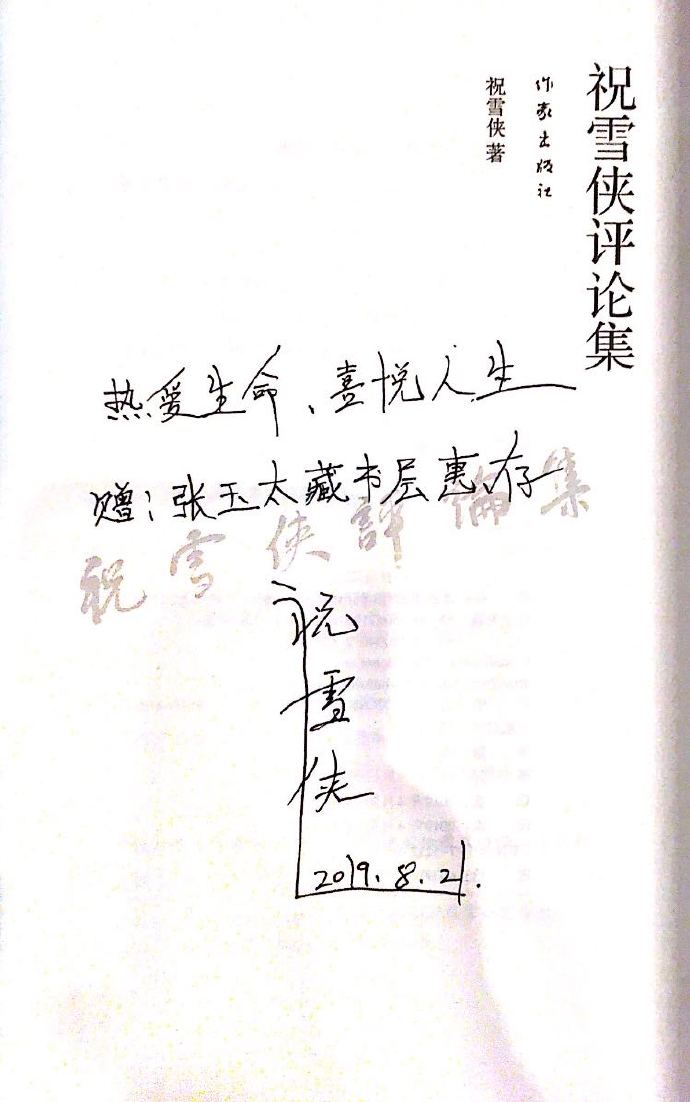 祝雪侠评论集
作家出版社
祝雪侠著
热爱生命、喜悦人生
赠：张玉太藏书层惠存
祝雪侠評論集
祝雪侠
2019.8.21.